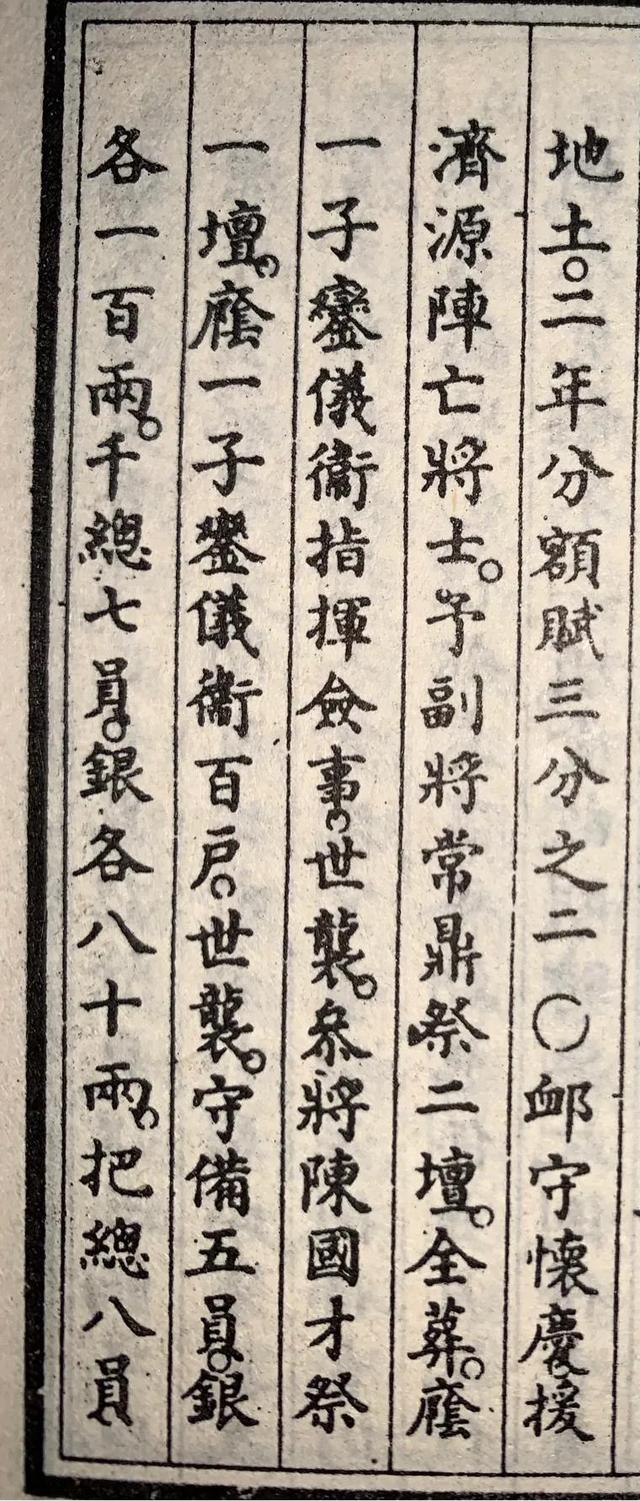 地土。二年分額賦三分之二○卹守懷慶援
濟源陣亡將士。予副將常鼎祭二壇。全葬。廕
一子鑾儀衞指揮僉事。世襲。叅將陳國才祭
一壇。廕一子鑾儀衞百戶。世襲。守備五員。銀
各一百兩。千總七員。銀各八十兩。把總八員